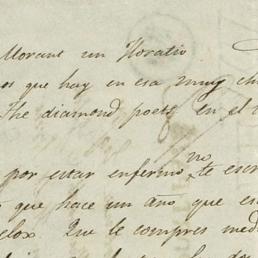 Morant un Horatio
os que hay en esa muy ch
The diamond poets en el
por estar enfermo no te escr
que hace un año que es
elox Que le compres med